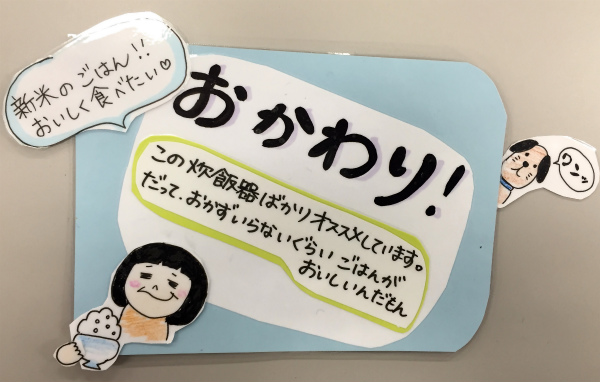 新米のごはん!!
おいしく食べたい♡
おかわり!
この炊飯器ばかりオススメしています。
だって、おかずいらないぐらいごはんが
おいしいんだもん
ワンッ